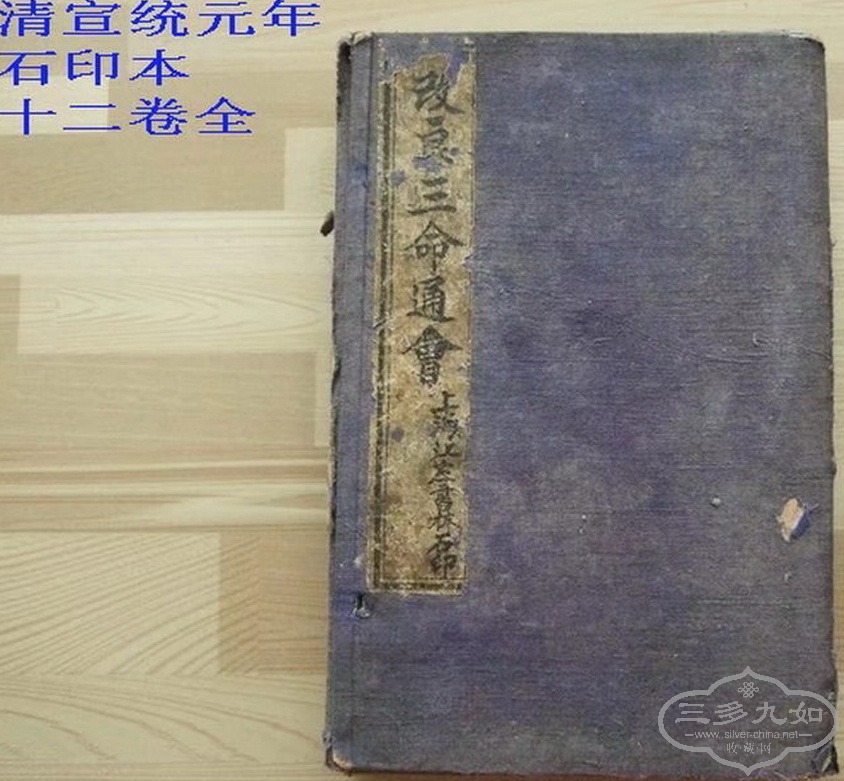 清宣统元年
石印本
十二卷全
改良三命通會
上海江左書林石印
三多九如
www.silver-china.net
收藏网